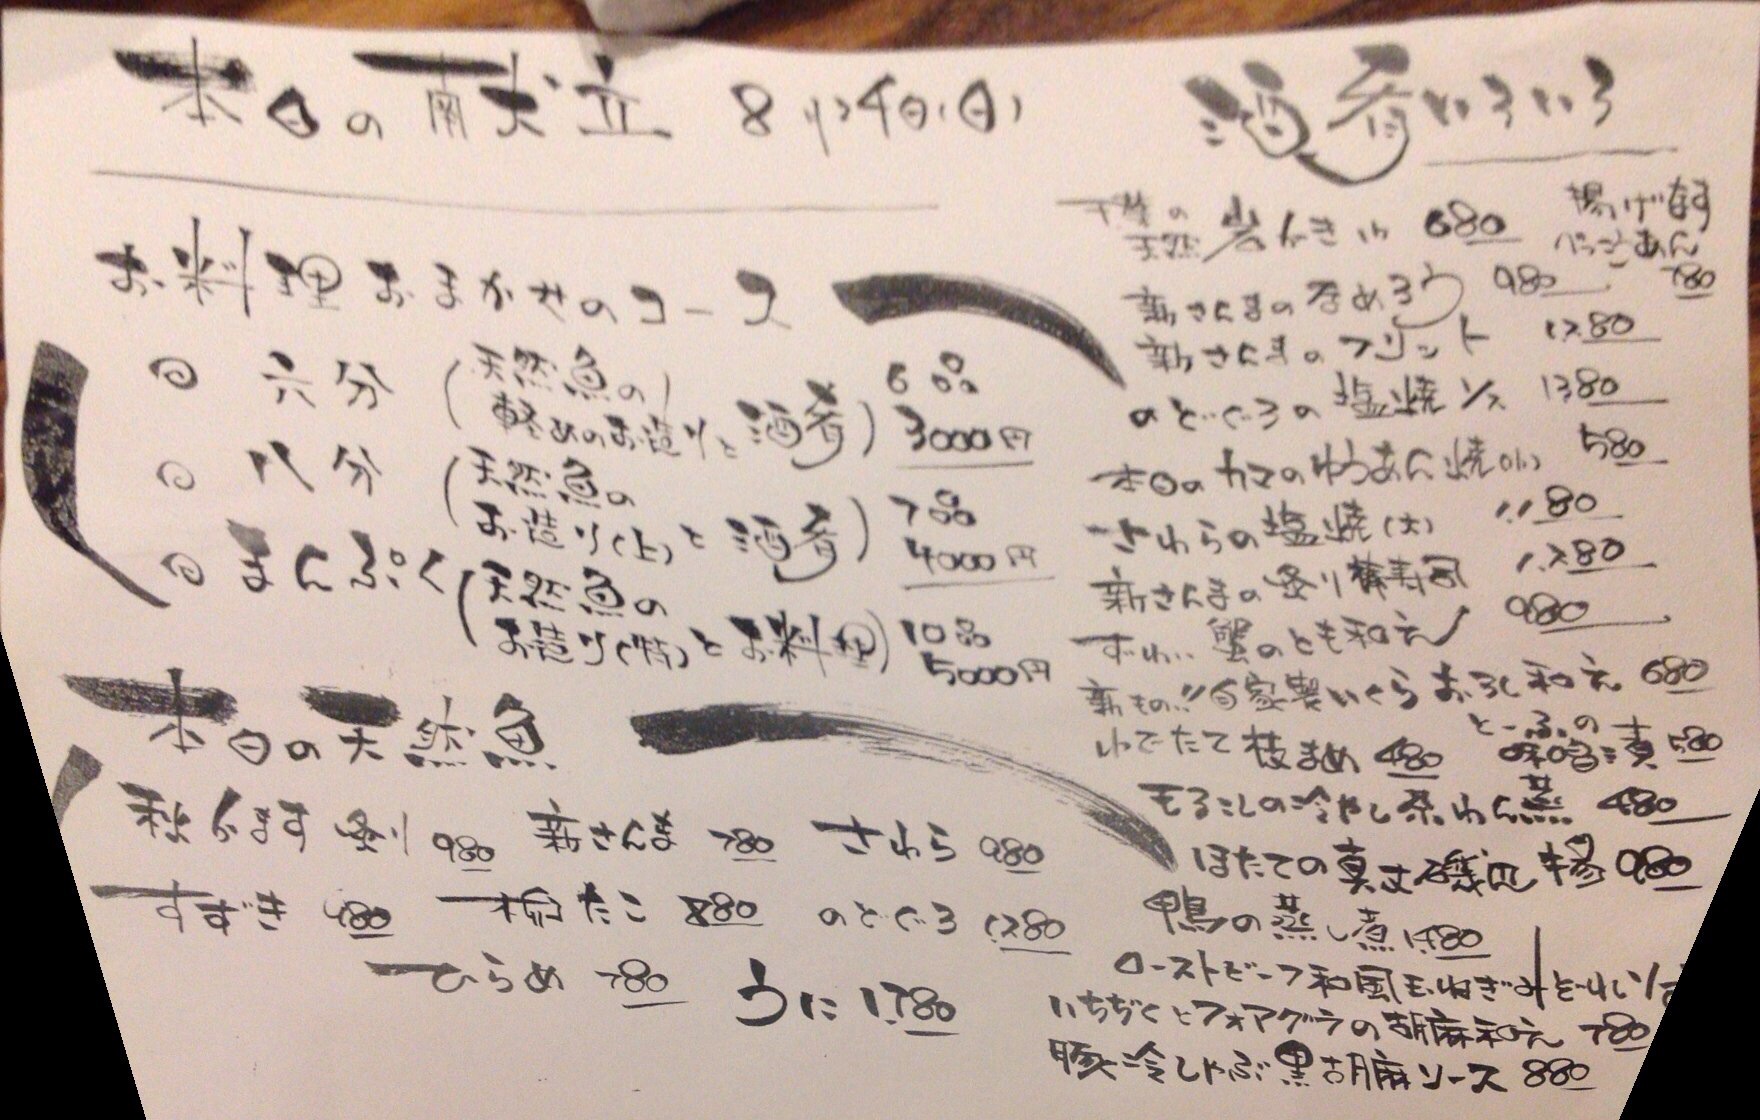 本日の献立 8/24日(日)
お料理おまかせのコース
六分 (天然魚の軽めのお造りと酒肴) 6品 3000円
八分 (天然魚のお造り(上)と酒肴) 7品 4000円
まんぷく (天然魚のお造り(特)とお料理) 10品 5000円
本日の天然魚
秋ます炙り 980 新さんま 780 さわら 980
すずき たこ 880 のどぐろ 1280
ひらめ 780 うに 1,780
酒肴いろいろ
天然岩がき 680
揚げなす
べっこうあん
780
新さんまのなめろう 980
新さんまのフリット 1280
のどぐろの塩焼 1380
本日のカマのゆうあん焼(小) 580
さわらの塩焼(大) 1,180
新さんまの炙り棒寿司 1,280
ずわい蟹のとも和え 980
新もの!!自家製いくらおろし和え 680
ゆでたて枝まめ 480
とーふの味噌漬 580
もろこしの冷やし茶わん蒸 480
ほたての真丈磯辺揚 980
鴨の蒸し煮 1,480
ローストビーフ和風玉ねぎ
いちぢくとフォアグラの胡麻和え 780
豚冷しゃぶ黒胡麻ソース 880